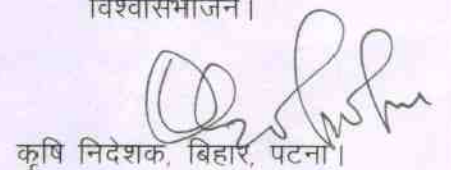 विश्वासभाजन।
कृषि निदेशक, बिहार, पटना।